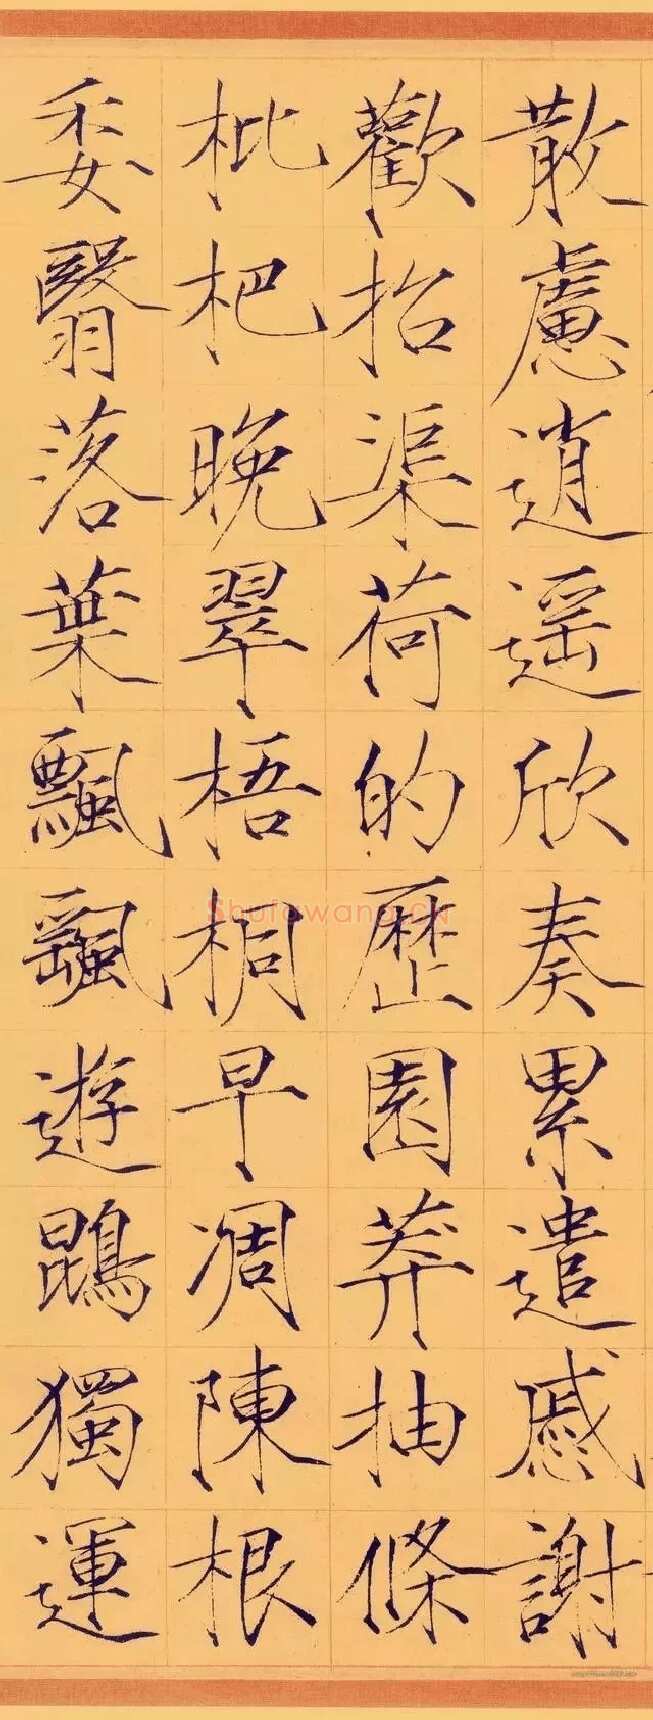 散慮逍遥欣奏累遣慼謝
歡招渠荷的歷園莽抽條
枇杷晚翠梧桐早凋陳根
委翳落葉飄飖遊鵾獨運
Shufawang.cn